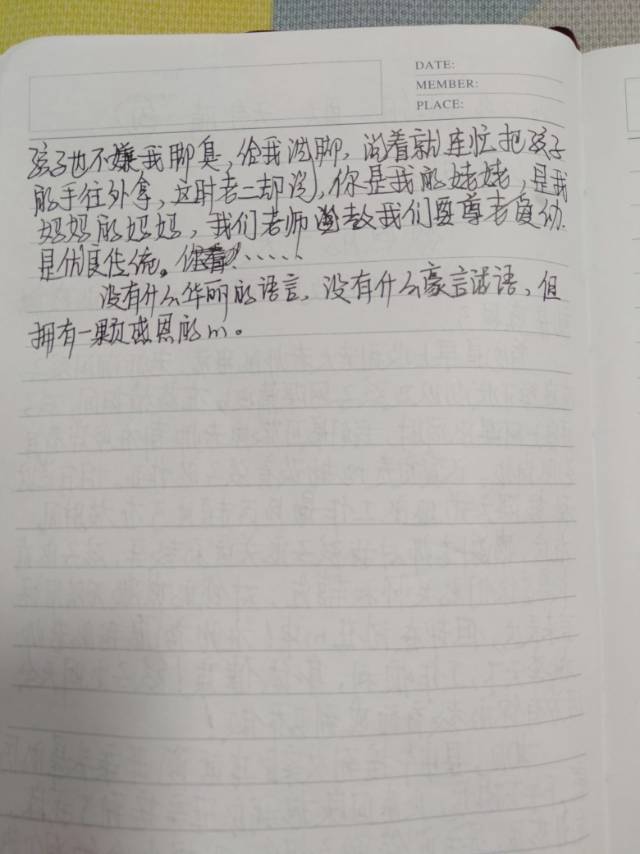 DATE:
MEMBER:
PLACE:
孩子也不嫌我脚臭,给我洗脚,说着就连忙把孩子
的手往外拿,这时老二却说,你是我的姥姥,是我
妈妈的妈妈,我们老师教我们要尊老爱幼
是优良传统。你看!......
没有什么华丽的语言,没有什么豪言语,但
拥有一颗感恩的心。